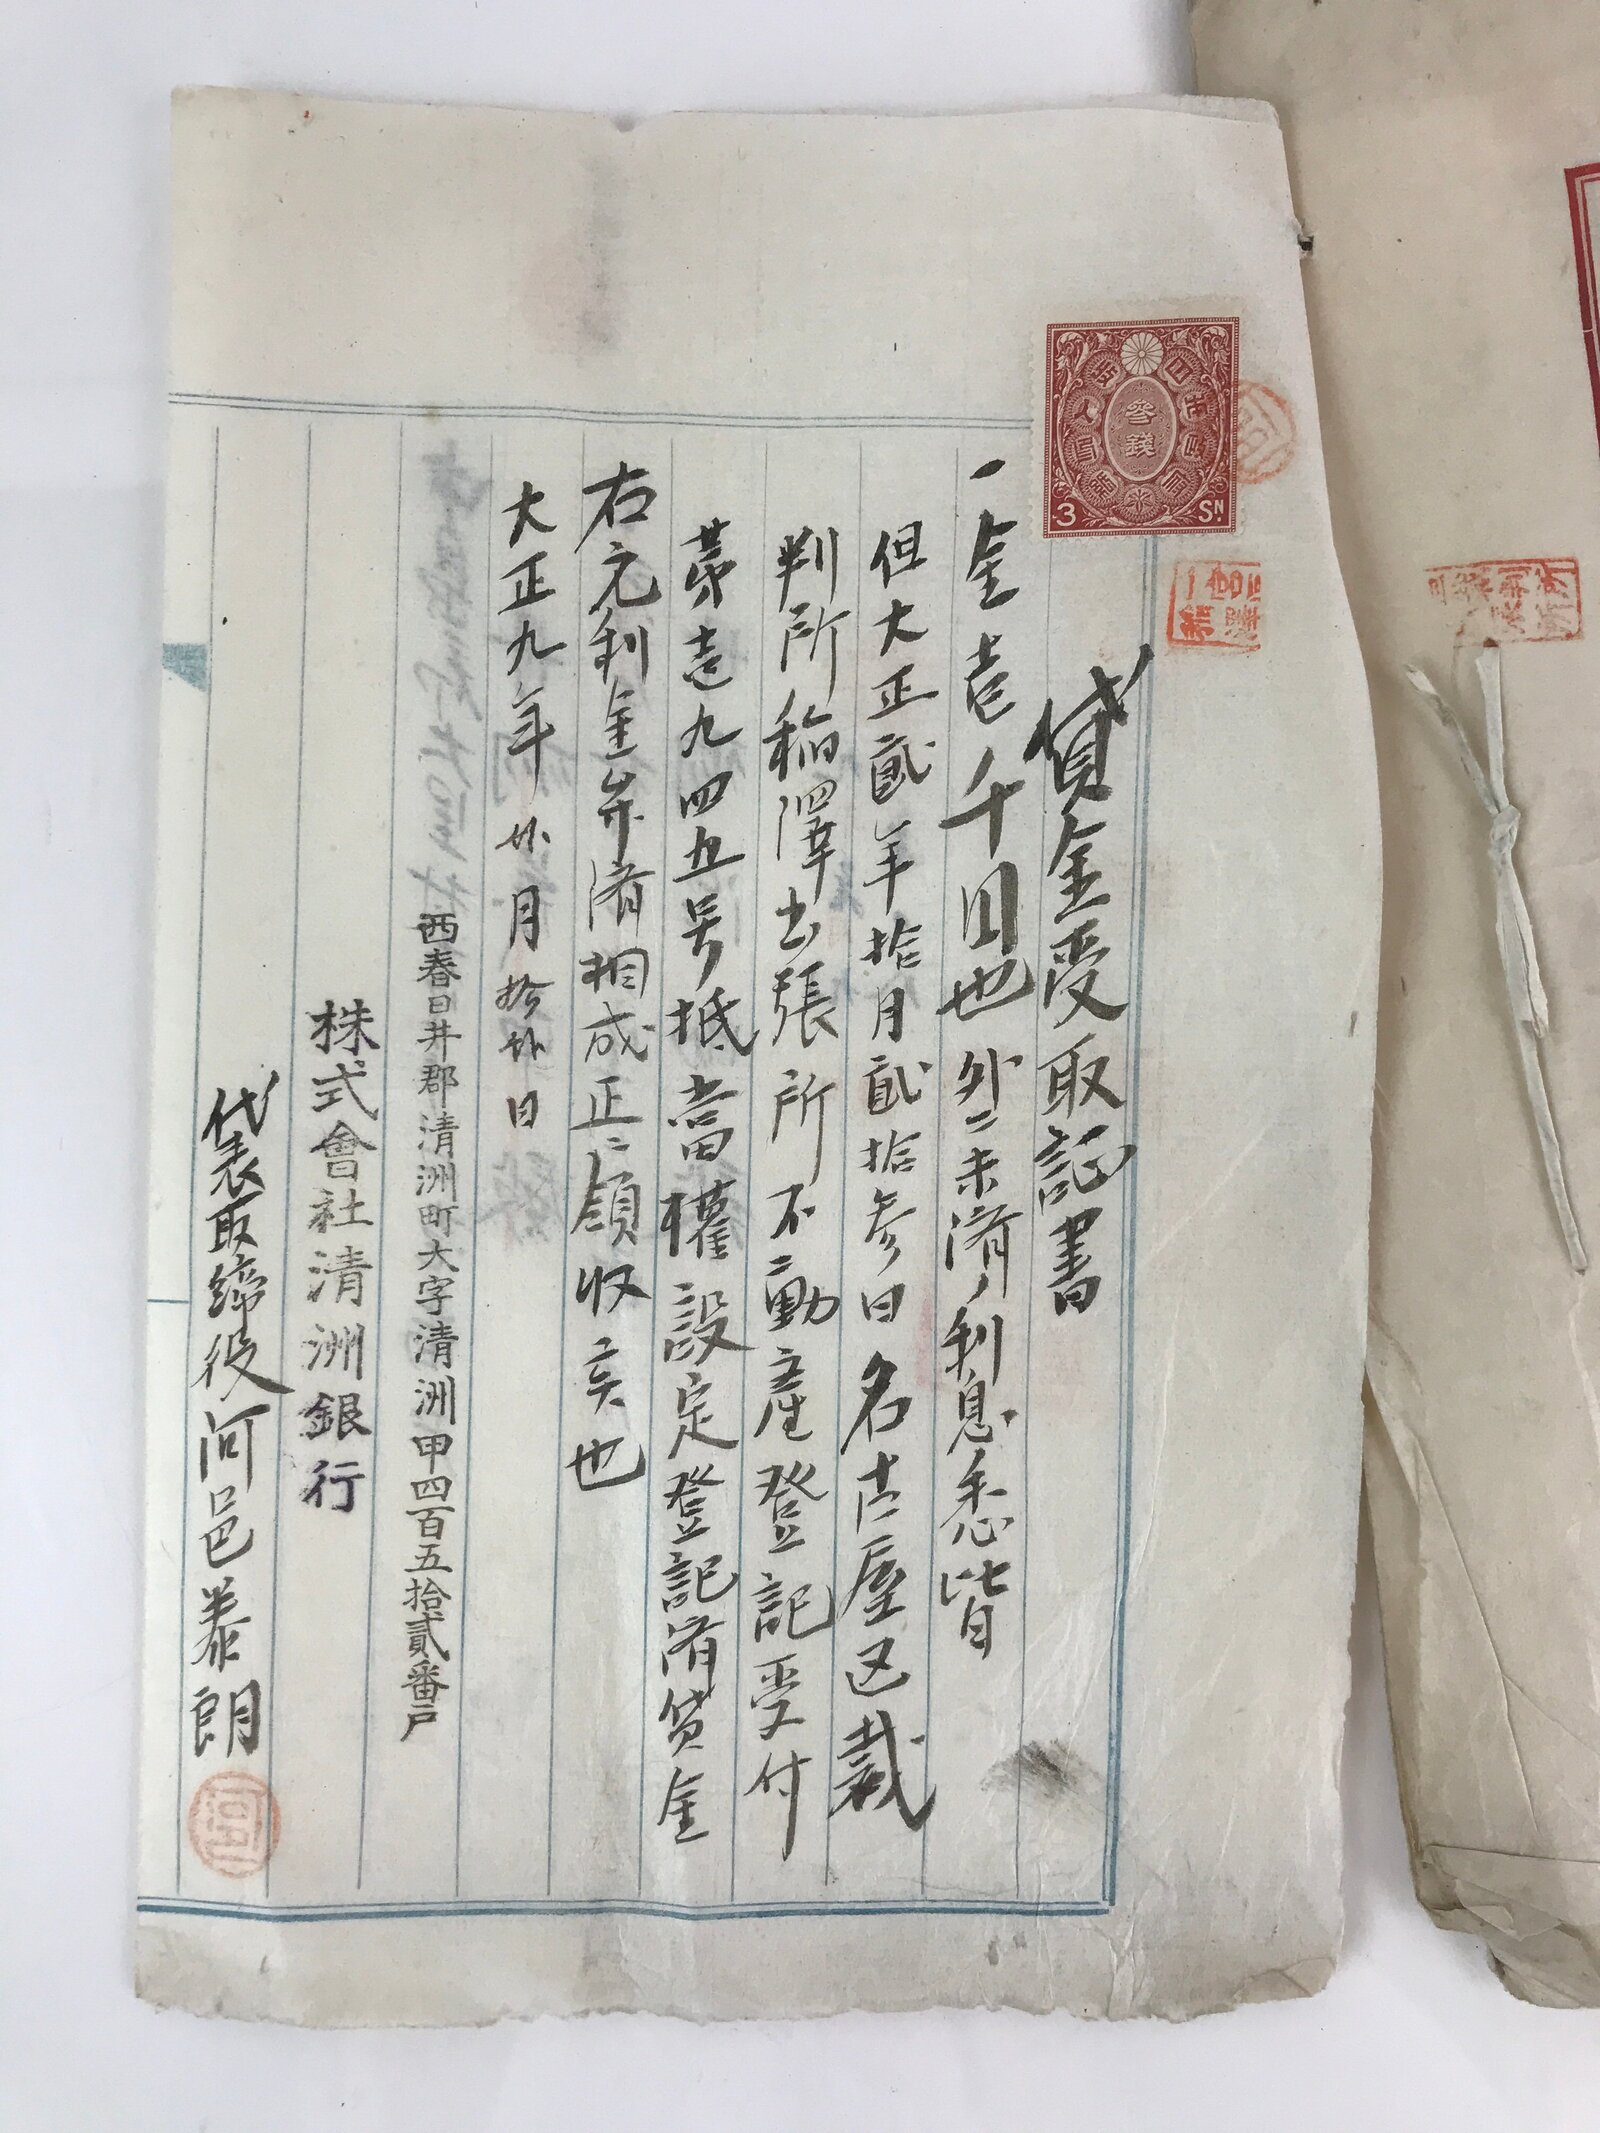 貸金受取証書
一金壱千円也 外ニ未済ノ利息悉皆
但大正貳年拾月貳拾参日名古屋区裁
判所稲澤出張所不動産登記受付
第壱九四五号抵當権設定登記済貸金
右元利金弁済相成正ニ領収候也
大正九年 月拾 日
西春日井郡清洲町大字清洲甲四百五拾貳番戸
株式會社清洲銀行
代表取締役河邑泰朗
参銭
3 SN.